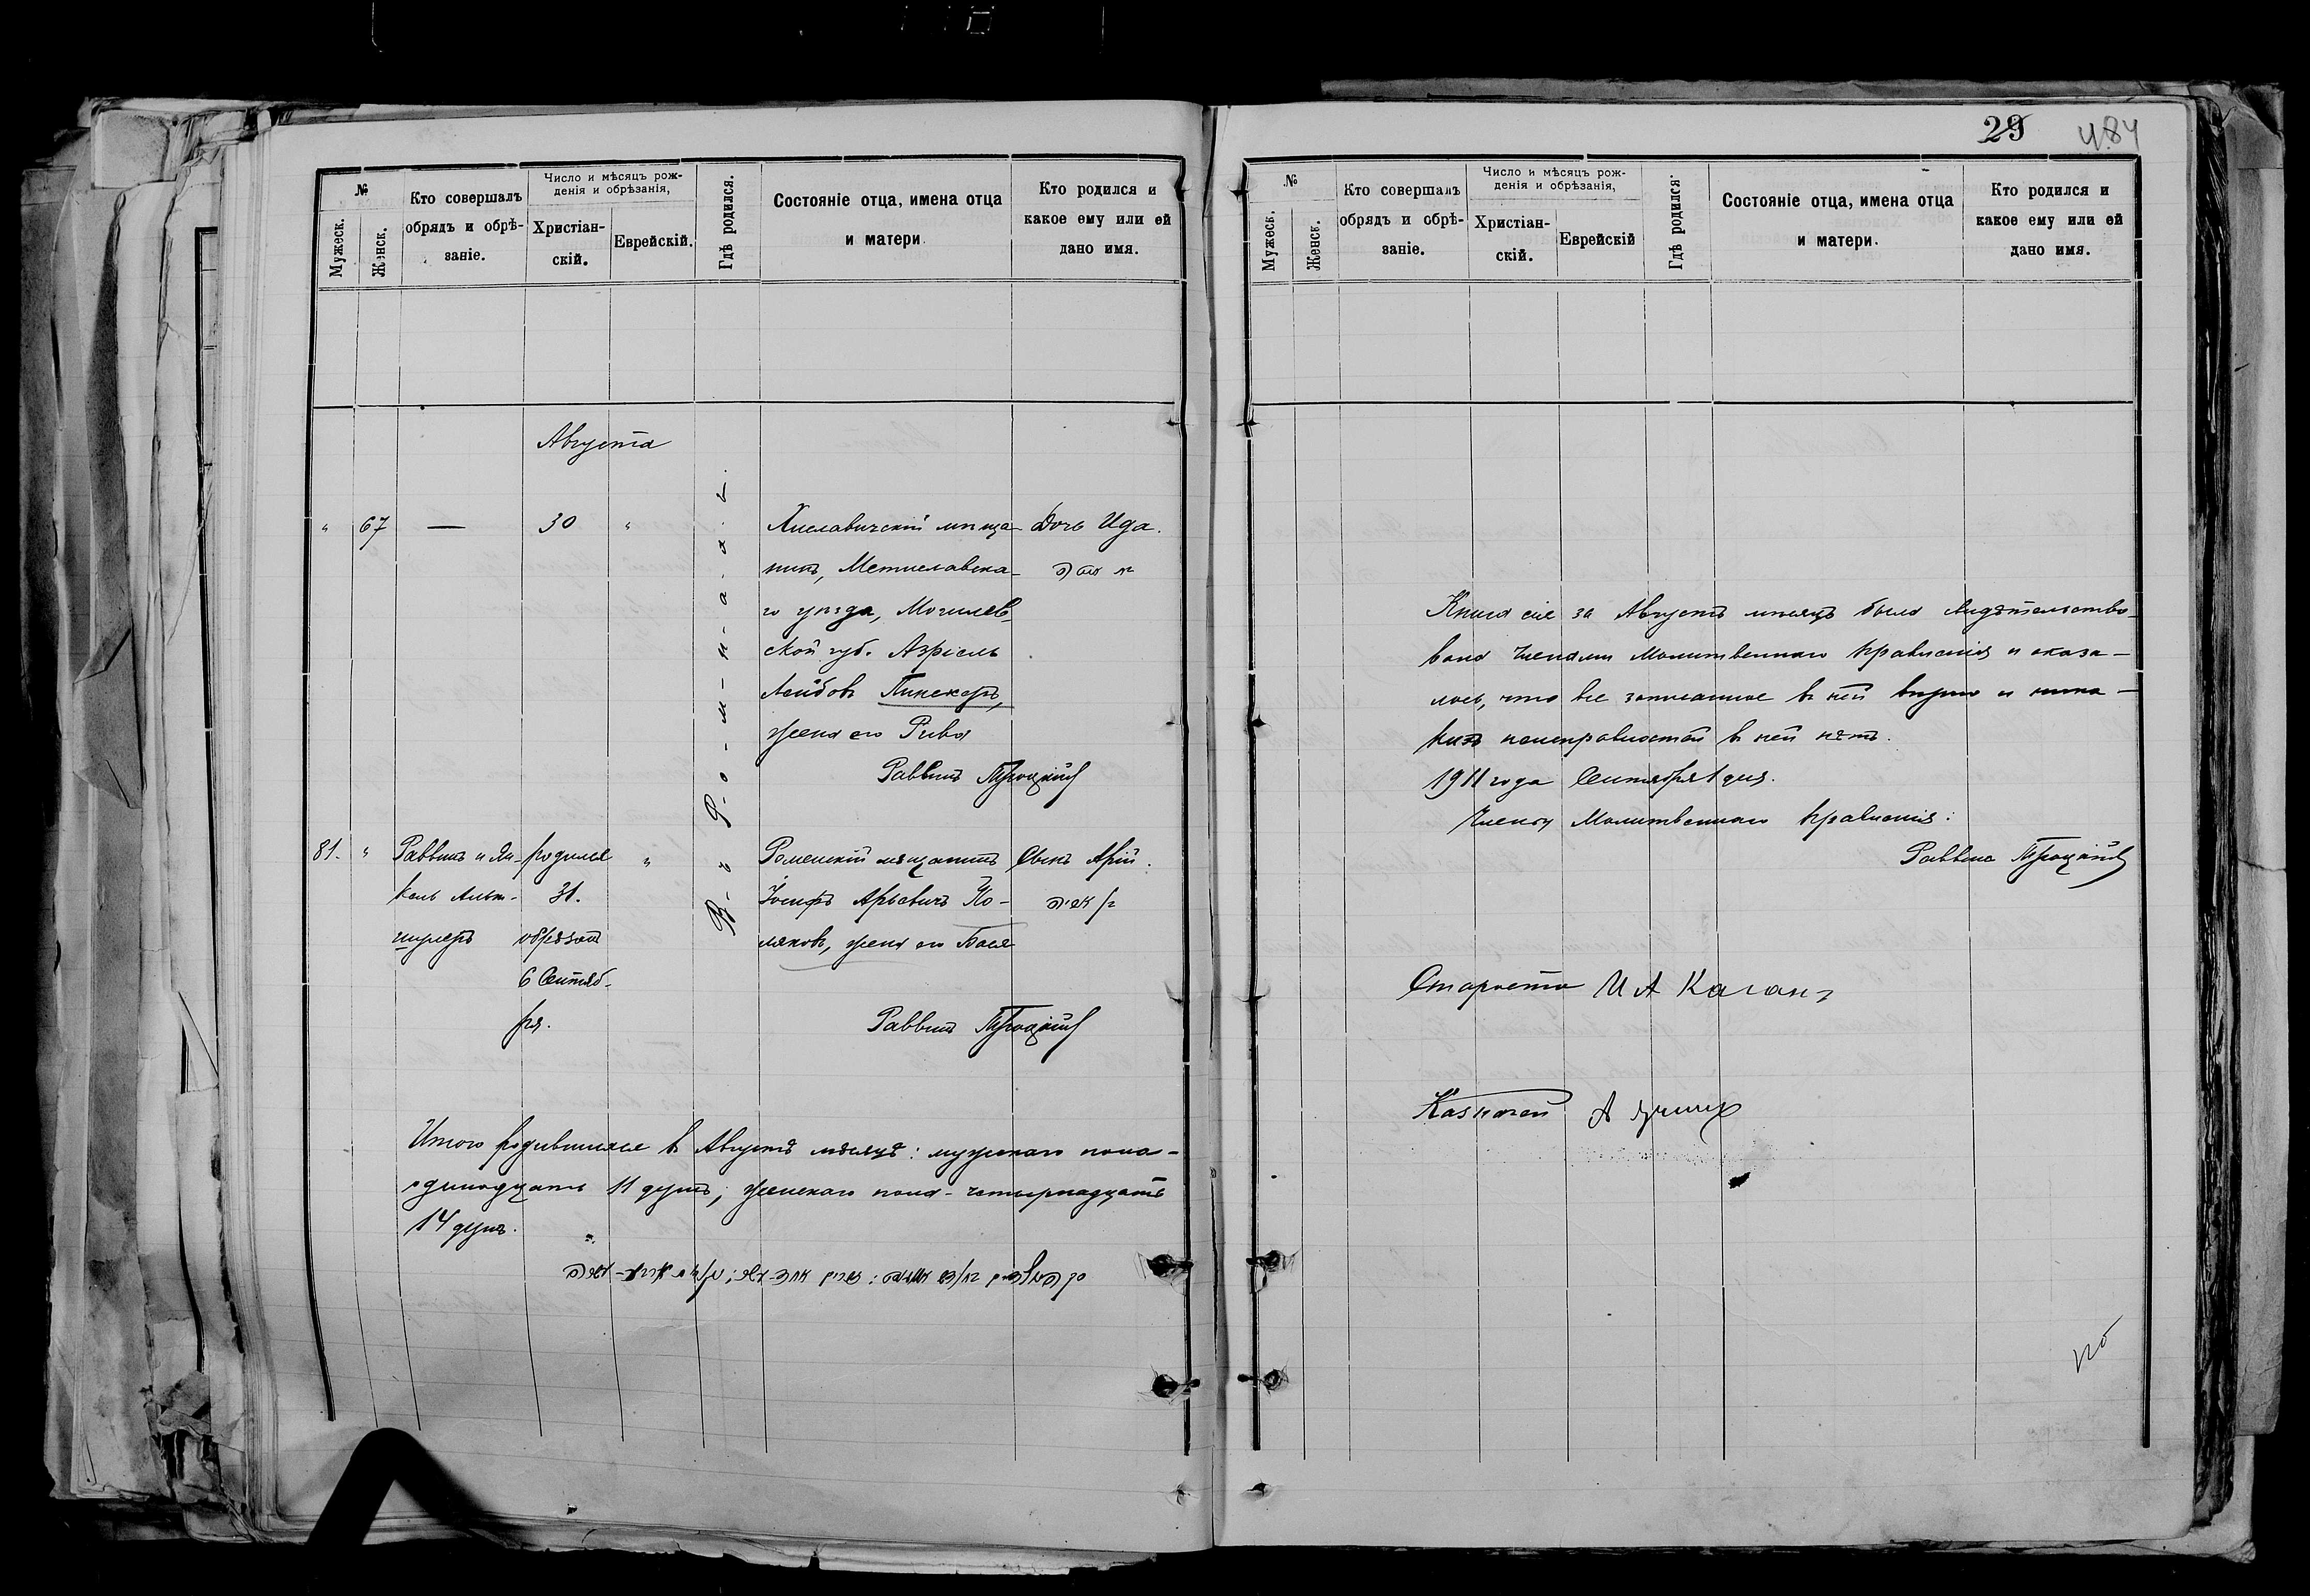 №
Мужеск.
Женск.
Кто совершалъ
обрядъ и обрѣ-
заніе.
Число и мѣсяцъ рож-
денія и обрѣзанія,
Христіан-
скій.
Еврейскій.
Гдѣ родился.
Состояніе отца, имена отца
и матери.
Кто родился и
какое ему или ей
дано имя.
Августа
В-ъ Р-о-м-н-а-х-ъ.
" 67 — 30 "
Хиславичскій мѣща-
нинъ, Мстиславска-
го уѣзда, Могилев-
ской губ. Азріель
Лейбовъ Пинскеръ,
жена его Рива
Дочь Ида.
Раввинъ Троцкій
81. "
Раввинъ и Ян-
кель Альт-
шулеръ
родился
31.
обрѣзанъ
6 Сентяб-
ря.
"
Роменскій мѣщанинъ
Іосифъ Арьевичъ По-
ляковъ, жена его Бася
Сынъ Арій.
Раввинъ Троцкій
Итого родившихся въ Августѣ мѣсяцѣ: мужскаго пола-
одинадцать 11 душъ; женскаго пола-четырнадцать
14 душъ.
29 484
№
Мужеск.
Женск.
Кто совершалъ
обрядъ и обрѣ-
заніе.
Число и мѣсяцъ рож-
денія и обрѣзанія,
Христіан-
скій.
Еврейскій
Гдѣ родился.
Состояніе отца, имена отца
и матери.
Кто родился и
какое ему или ей
дано имя.
Книга сія за Августъ мѣсяцъ была свидѣтельство-
вана Членами Молитвеннаго Правленія и оказа-
лось, что все записанное въ ней вѣрно и ника-
кихъ неисправностей въ ней нѣтъ.
1911 года Сентября 1 дня.
Члены Молитвеннаго Правленія:
Раввинъ Троцкій
Староста И А Каганъ
Казначей А